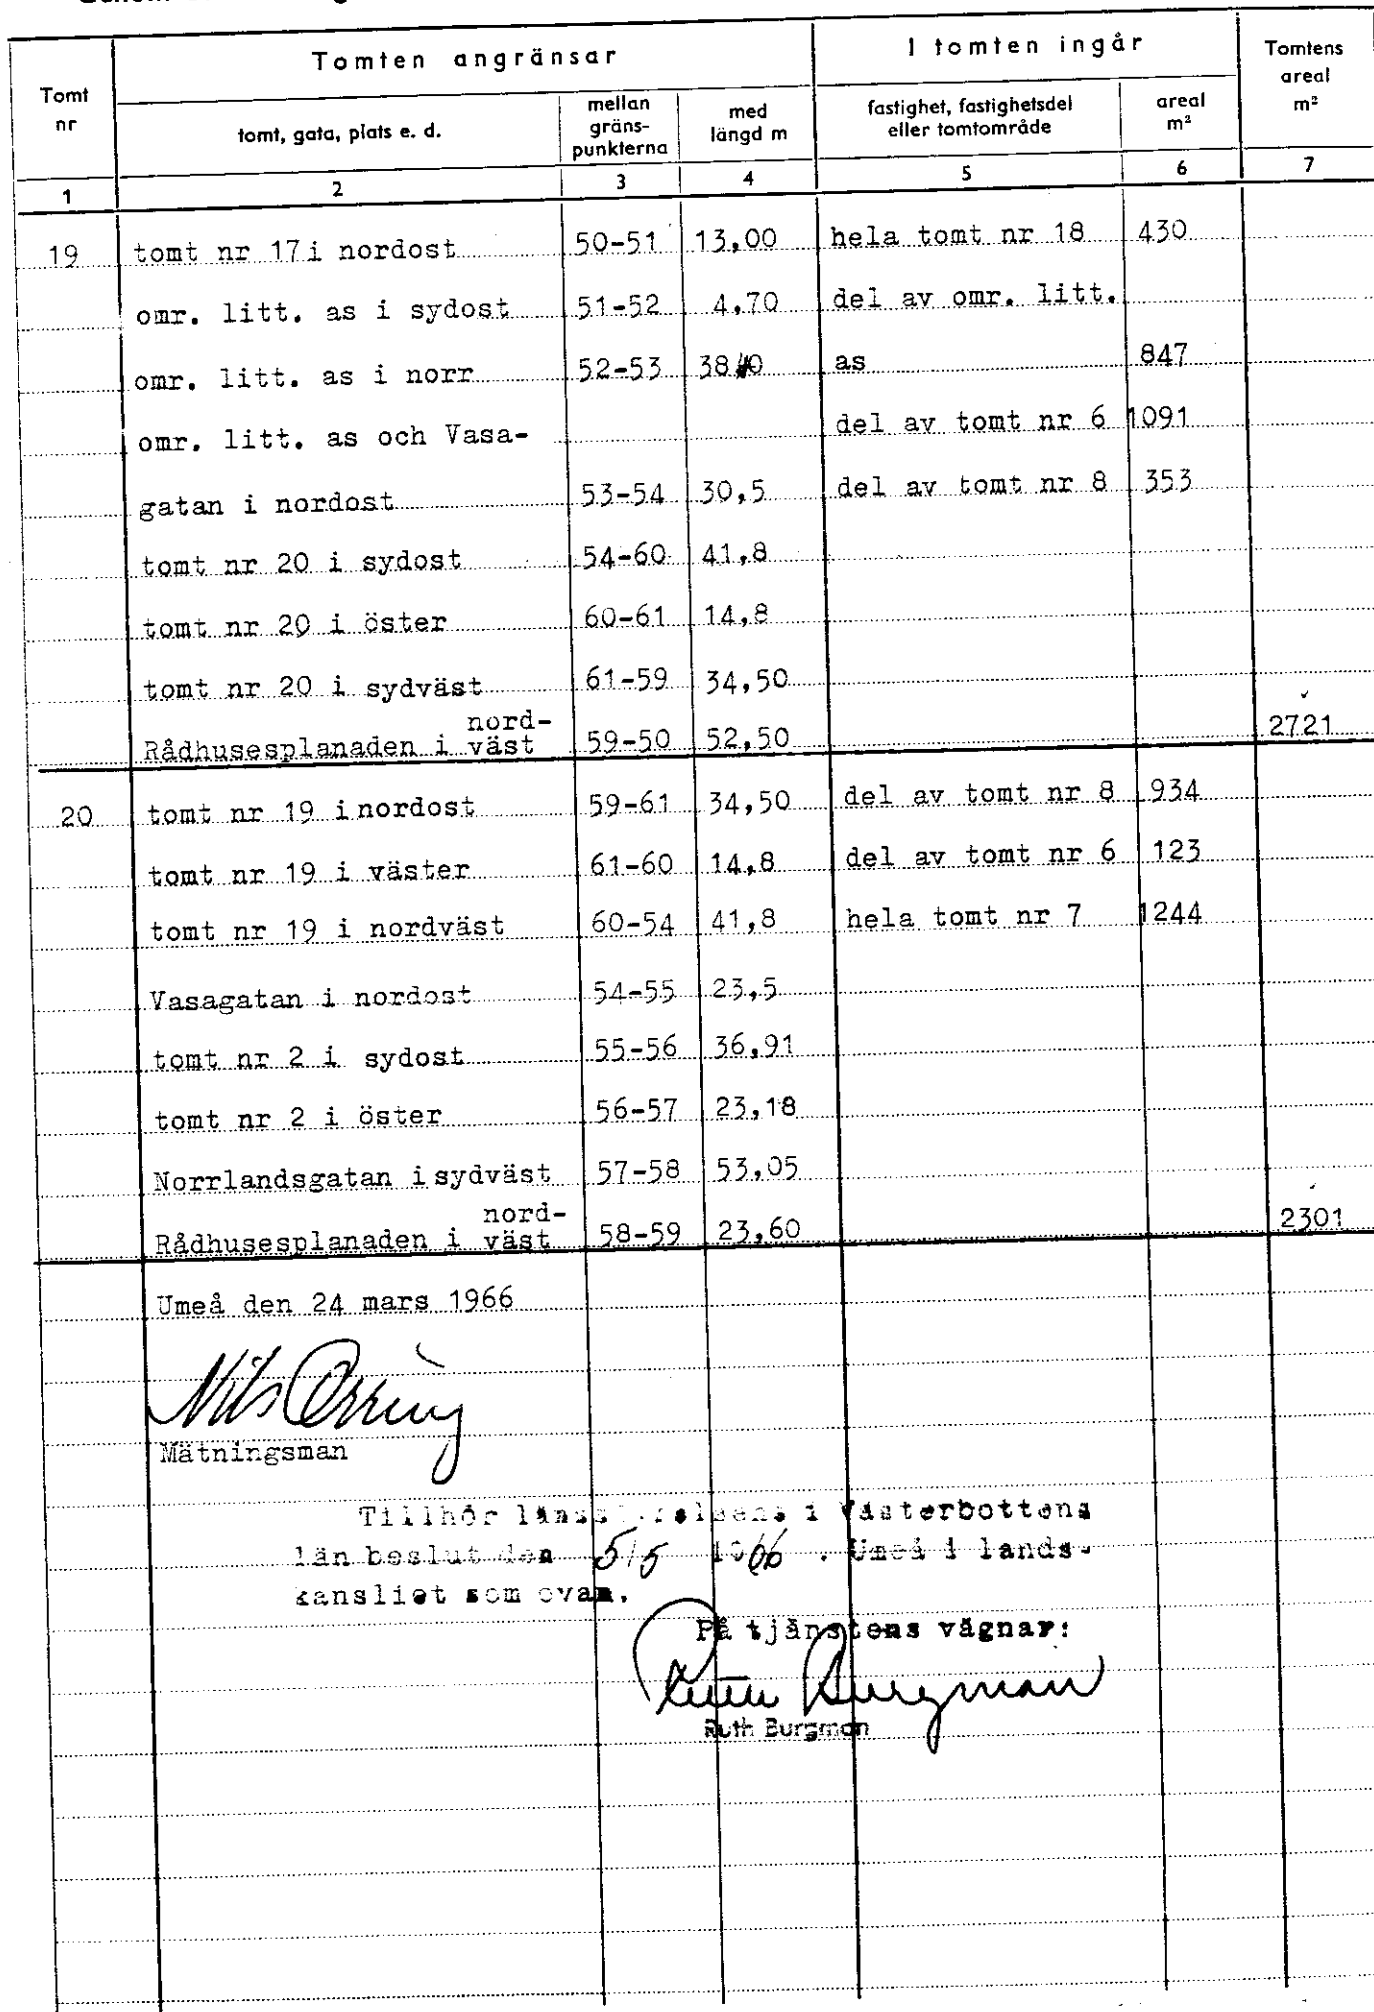 Tomt nr	Tomten angränsar	I tomten ingår	Tomtens areal m²
tomt, gata, plats e. d.	mellan gränspunkterna	med längd m	fastighet, fastighetsdel eller tomtområde	areal m²
1	2	3	4	5	6	7
19	tomt nr 17 i nordost	50-51	13,00	hela tomt nr 18	430
omr. litt. as i sydost	51-52	4,70	del av omr. litt.
omr. litt. as i norr	52-53	as	847
omr. litt. as och Vasa-	del av tomt nr 6	1091
gatan i nordost	53-54	30,5	del av tomt nr 8	353
tomt nr 20 i sydost	54-60	41,8
tomt nr 20 i öster	60-61	14,8
tomt nr 20 i sydväst	61-59	34,50
Rådhusesplanaden i nord-väst	59-50	52,50	2721
20	tomt nr 19 i nordost	59-61	34,50	del av tomt nr 8	934
tomt nr 19 i väster	61-60	14,8	del av tomt nr 6	123
tomt nr 19 i nordväst	60-54	41,8	hela tomt nr 7	1244
Vasagatan i nordost	54-55	23,5
tomt nr 2 i sydost	55-56	36,91
tomt nr 2 i öster	56-57	23,18
Norrlandsgatan i sydväst	57-58	53,05
Rådhusesplanaden i nord-väst	58-59	23,60	2301
Umeå den 24 mars 1966
Nils Orring
Mätningsman
Tillhör länsstyrelsens i Västerbottens
län beslut den 5/5 1966. Umeå i lands-
kansliet som ovan.
På tjänstens vägnar:
Ruth Burgman
Ruth Burgman